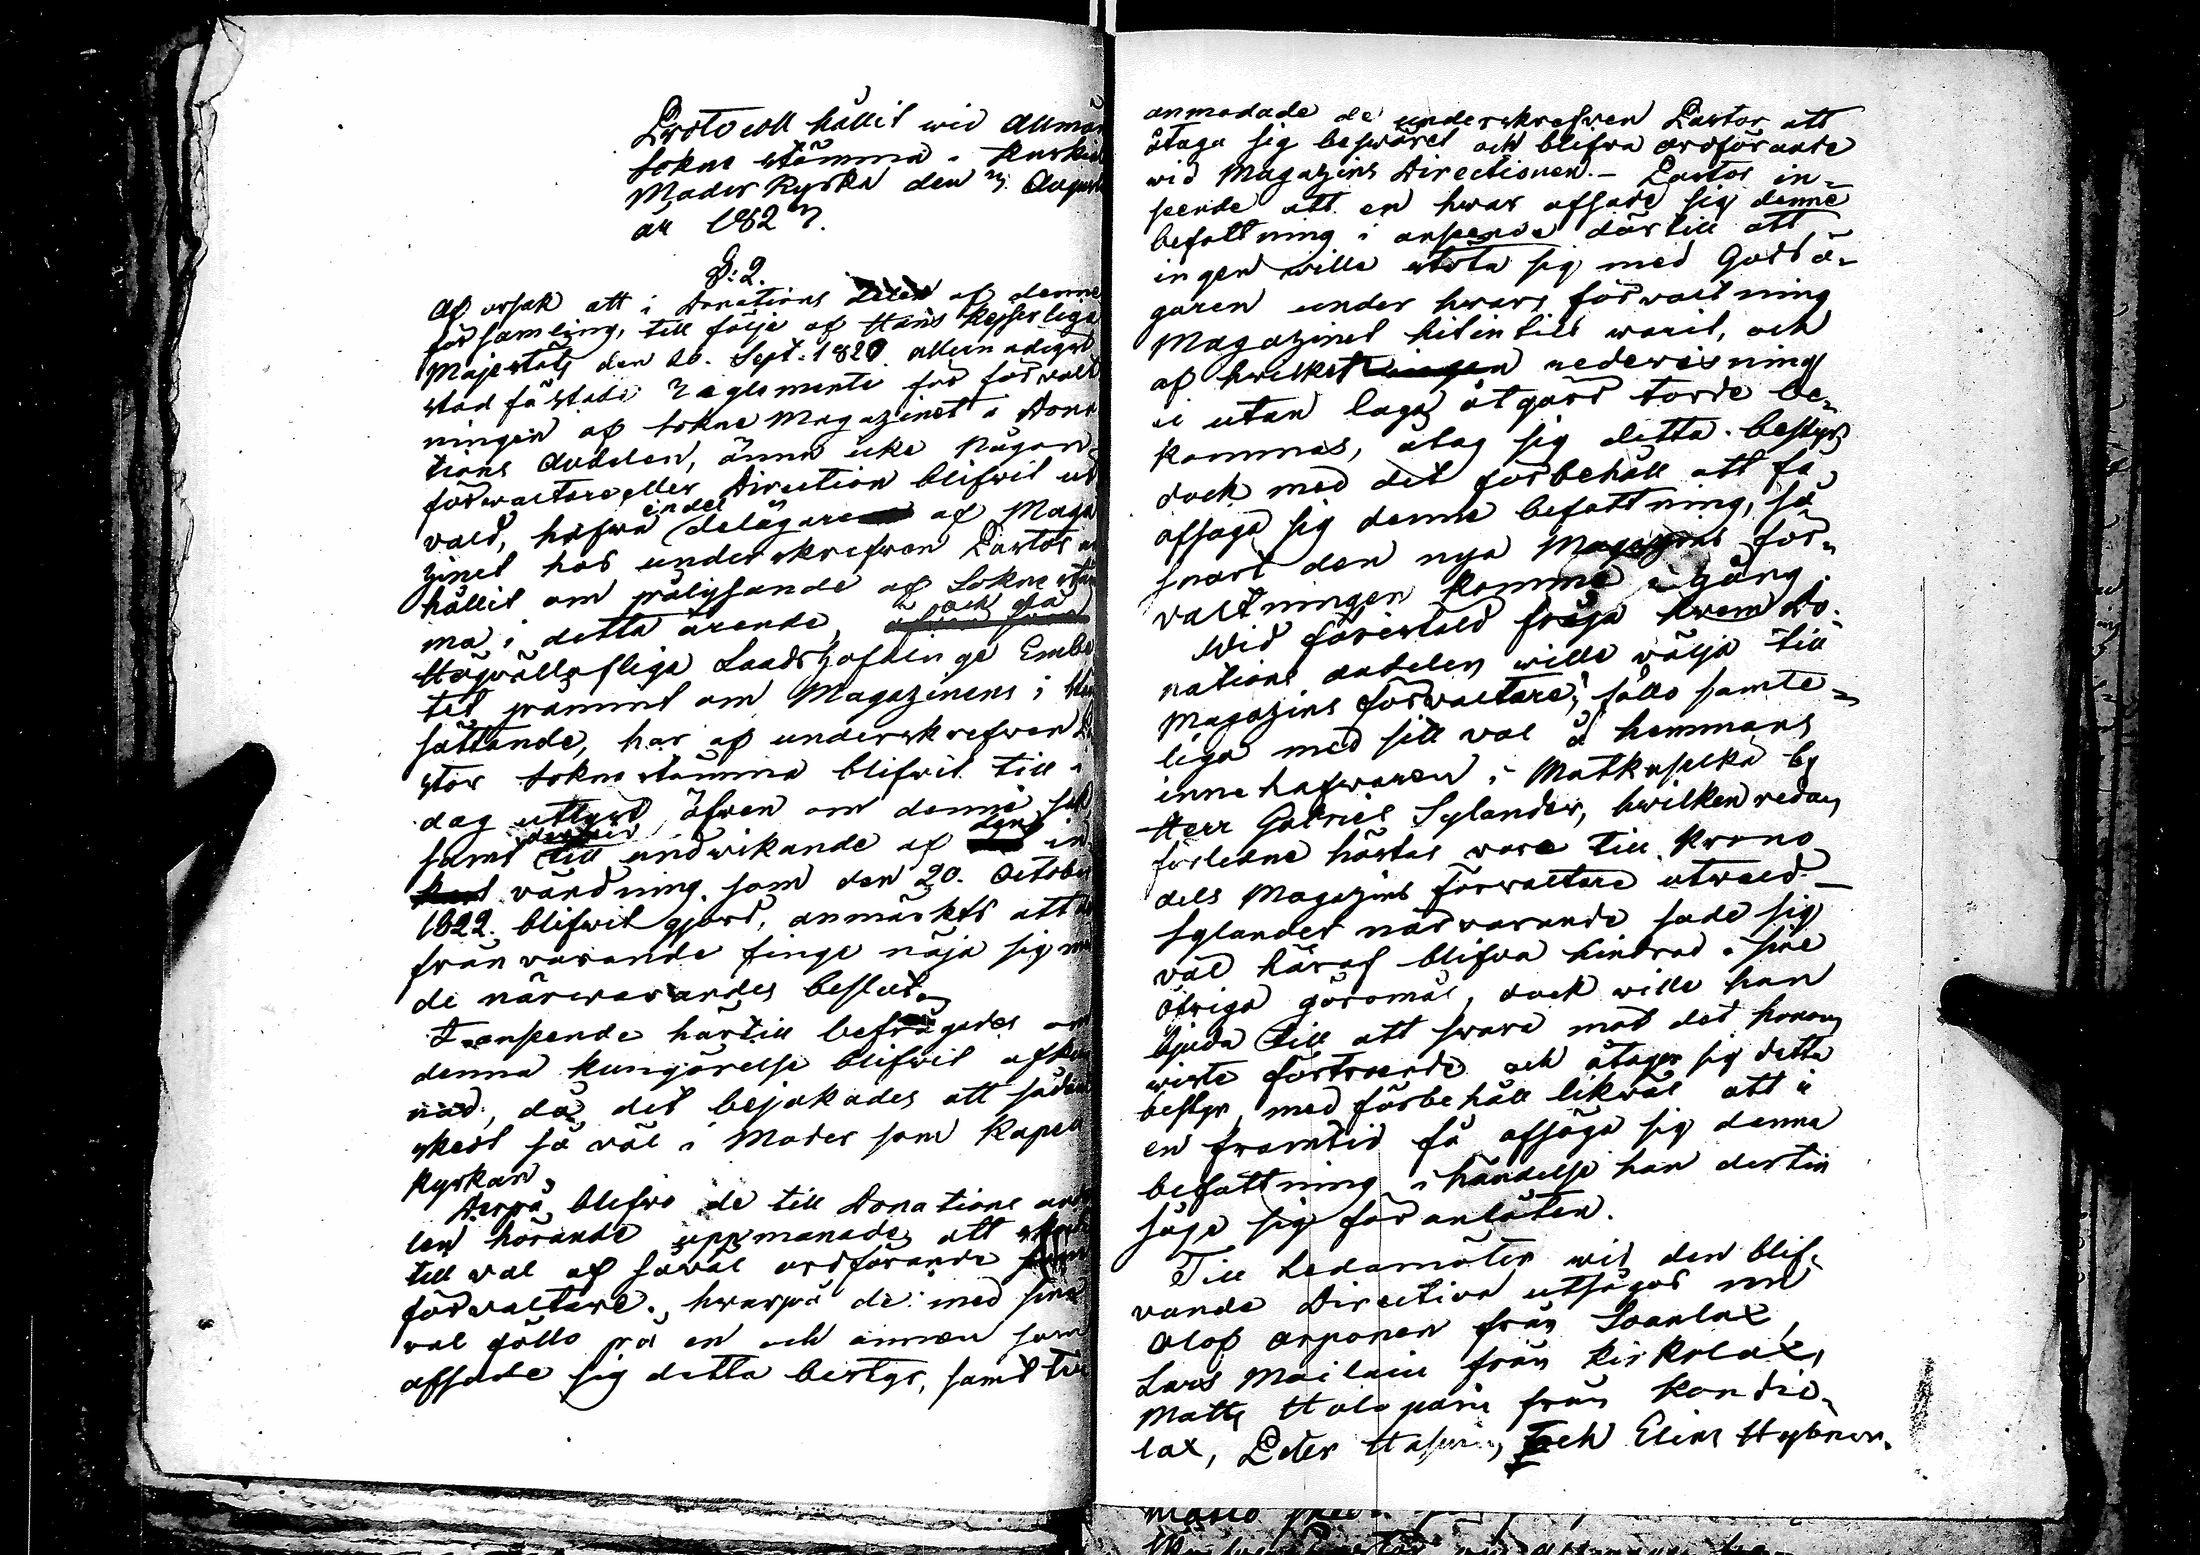 Protocoll hållit wid Allmän
sokne stämma i Ruskiala
Moder Kyrka den 3. Augusti
år 1823.
§: 2.
Af orsak att i Donations delen af denne
församling, till följe af Hans Kejserliga
Majestäts den 20. Sept. 1820 allernådigst
stadfästade Reglemente för förvalt
ningen af sokne Magazinet å Dona
tions andelen, ännu icke någon
förwaltare eller Direction blifwit ut
vald, hafwa en del delägare af Maga
zinet hos underskrefwen Pastor an
hållit om pålysande af Sokne stäm
ma i detta ärende, och på
Högvällofliga Landshöfdinge Embe
tet påmint om Magazinens i stånd
sättande, har af underskrefwen Pa
stor sokne stämma blifwit till i
dag utlyst, äfwen om denne sak
samt till undwikande af den in
vändning som den 20. October
1822. blifwit gjord, anmärkts att de
frånvarande finge nöja sig med
de närwarandes beslut.
I anseende härtill befrågades om
denna kungörelse blifwit afkun
nad, då det bejakades att sådant
skedt så väl i Moder som Kapell
kyrkan.
Derpå blefwo de till Donations ande
len hörande uppmanade att skrida
till val af såväl ordförande som
förvaltare. hwarpå de med sina
val föllo på en och annan som
afsade sig detta bestyr, samt till
anmodade de underskrefven Pastor att
åtaga sig beswäret och blifva ordförande
wid Magazins Directionen. – Pastor in=
seende att en hwar afsade sig denne
befattning i anseende därtill att
ingen wille stöta sig med Godsä=
garen under hwars förvaltning
Magazinet hitintills warit, och
af hwilket redovisning
ei utan laga åtgärd torde be=
kommas, åtog sig detta bestyr
dock med det förbehåll att få
afsaga sig denne befattning, så
snart den nya Magazins för=
valtningen komme i gång.
Wid föreställd fråga hwem Do=
nations andelen wille välja till
Magazins förvaltare, föllo samte=
liga med sitt val å hemmans
innehafwaren i Matkaselkä by
Herr Gabriel Sylander, hwilken redan
förledne höstas vore till Krono
dels Magazins förvaltare utwald –
Sylander närvarande sade sig
väl häraf blifva hindrad i sine
öfriga göromål, dock wille han
bjuda till att svara mot det honom
wiste förtroende och åtager sig detta
bestyr, med förbehåll likwäl att i
en framtid få afsäga sig denna
befattning i händelse han dertill
såge sig föranlåten.
Till Ledamöter wid den blif=
vande Direction utsågos nu
Olof Arponen från Soanlax,
Lars Mailain från Kirkolax,
Matts Holopain från Kondie=
lax, Peter Hasuin, och Elias Hybner.